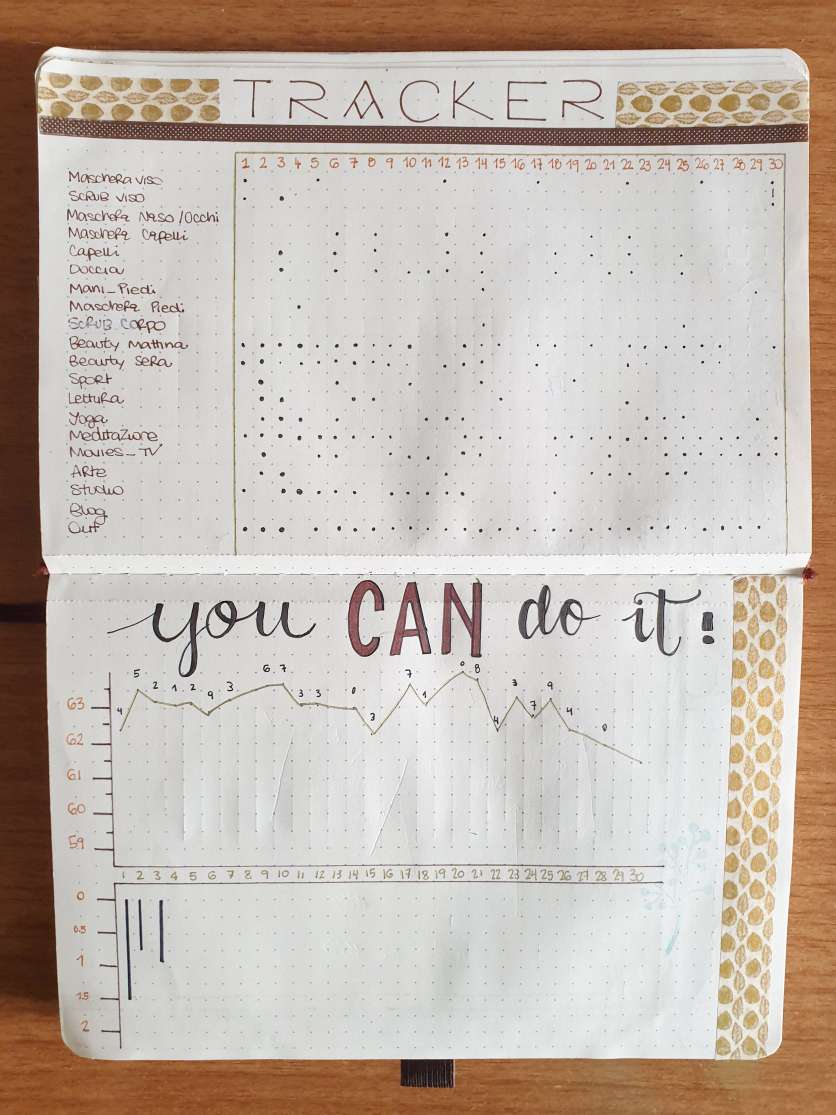 TRACKER
1 2 3 4 5 6 7 8 9 10 11 12 13 14 15 16 17 18 19 20 21 22 23 24 25 26 27 28 29 30
Maschera viso
Scrub viso
Maschera Naso/Occhi
Maschera Capelli
Capelli
Doccia
Mani_Piedi
Maschera Piedi
Scrub Corpo
Beauty Mattina
Beauty Sera
Sport
Lettura
Yoga
Meditazione
Movies_TV
Arte
Studio
Blog
Out
you CAN do it!
4 5 2 1 2 9 3 6 7 3 3 0 3 7 1 0 8 4 3 7 9 4 0
63
62
61
60
59
1 2 3 4 5 6 7 8 9 10 11 12 13 14 15 16 17 18 19 20 21 22 23 24 25 26 27 28 29 30
0
0.5
1
1.5
2